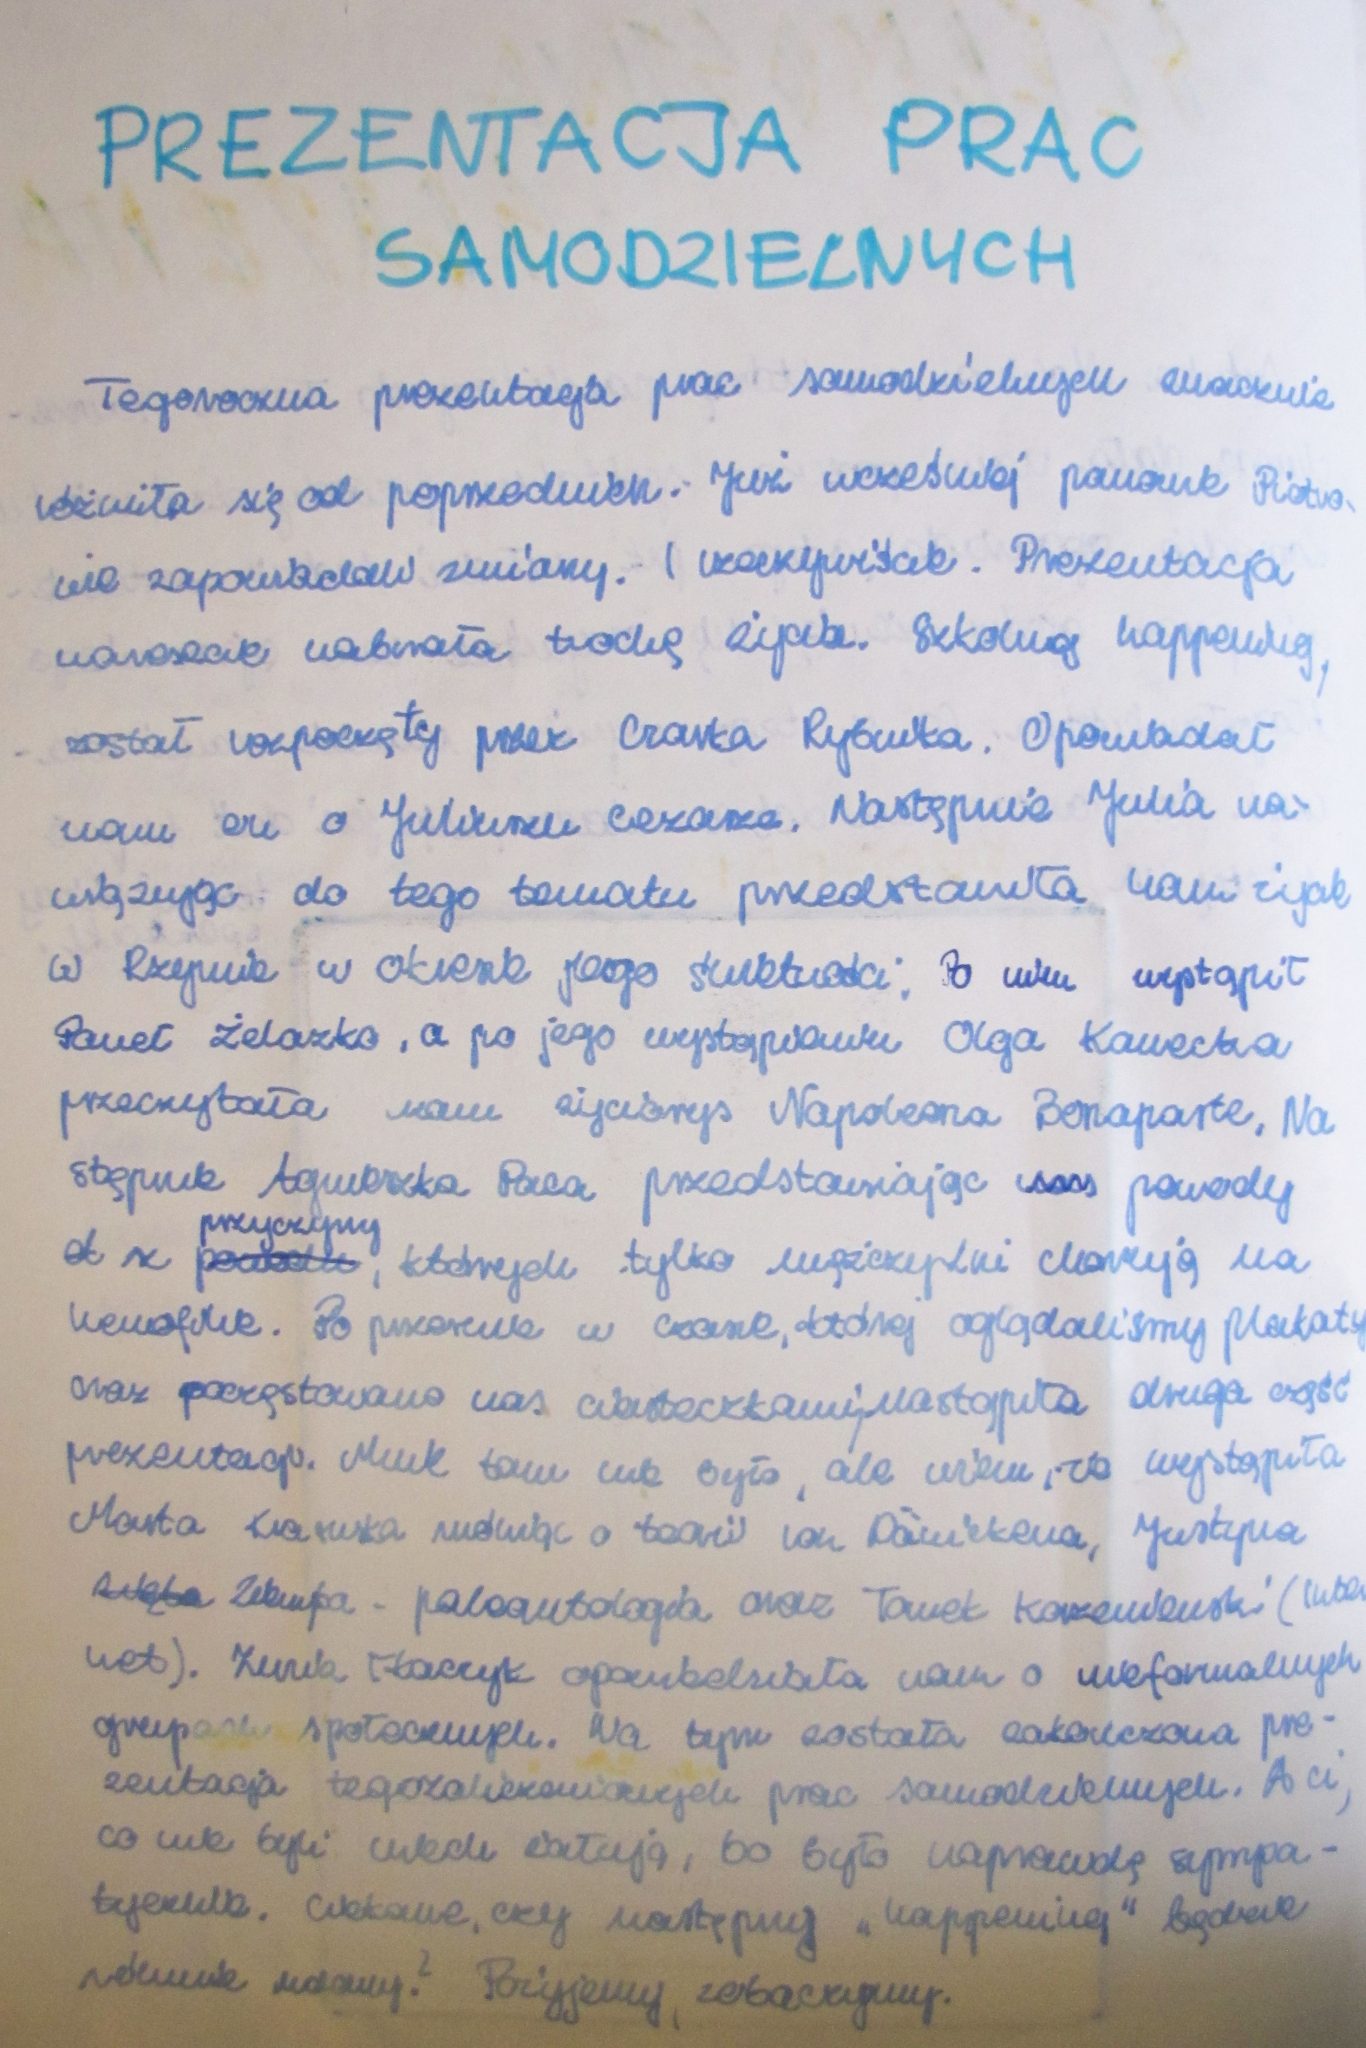 PREZENTACJA PRAC
SAMODZIELNYCH
Tegoroczna prezentacja prac samodzielnych znacznie
różniła się od poprzednich. Już wcześniej panowie Piotro-
wie zapowiadali zmiany. I rzeczywiście. Prezentacja
nareszcie nabrała trochę życia. Szkolny happening,
został rozpoczęty przez Czarka Rybnika. Opowiadał
nam on o Juliuszu Cezarze. Następnie Julia na-
wiązując do tego tematu przedstawiła nam życie
w Rzymie w okresie jego świetności. Po nim wystąpił
Paweł Żelazko, a po jego wystąpieniu Olga Kawecka
przeczytała nam życiorys Napoleona Bonaparte. Na
stępnie Agnieszka Paca przedstawiając powody
przyczyny
których tylko mężczyźni chorują na
hemofilie. Po przerwie w czasie, której oglądaliśmy plakaty
oraz poczęstowano nas ciasteczkami, nastąpiła druga część
prezentacji. Mnie tam nie było, ale wiem, że wystąpiła
Marta mówiąc o teorii von Dänikena, Justyna
- paleontologia oraz Tomek Korzeniewski (Inter
net). Tkaczyk opowiedziała nam o nieformalnych
grupach społecznych. Na tym została zakończona pre-
zentacja prac samodzielnych. A ci,
co nie byli niech żałują, bo było naprawdę sympa-
tycznie. Ciekawe, czy następny "happening" będzie
równie udany? Pożyjemy, zobaczymy.